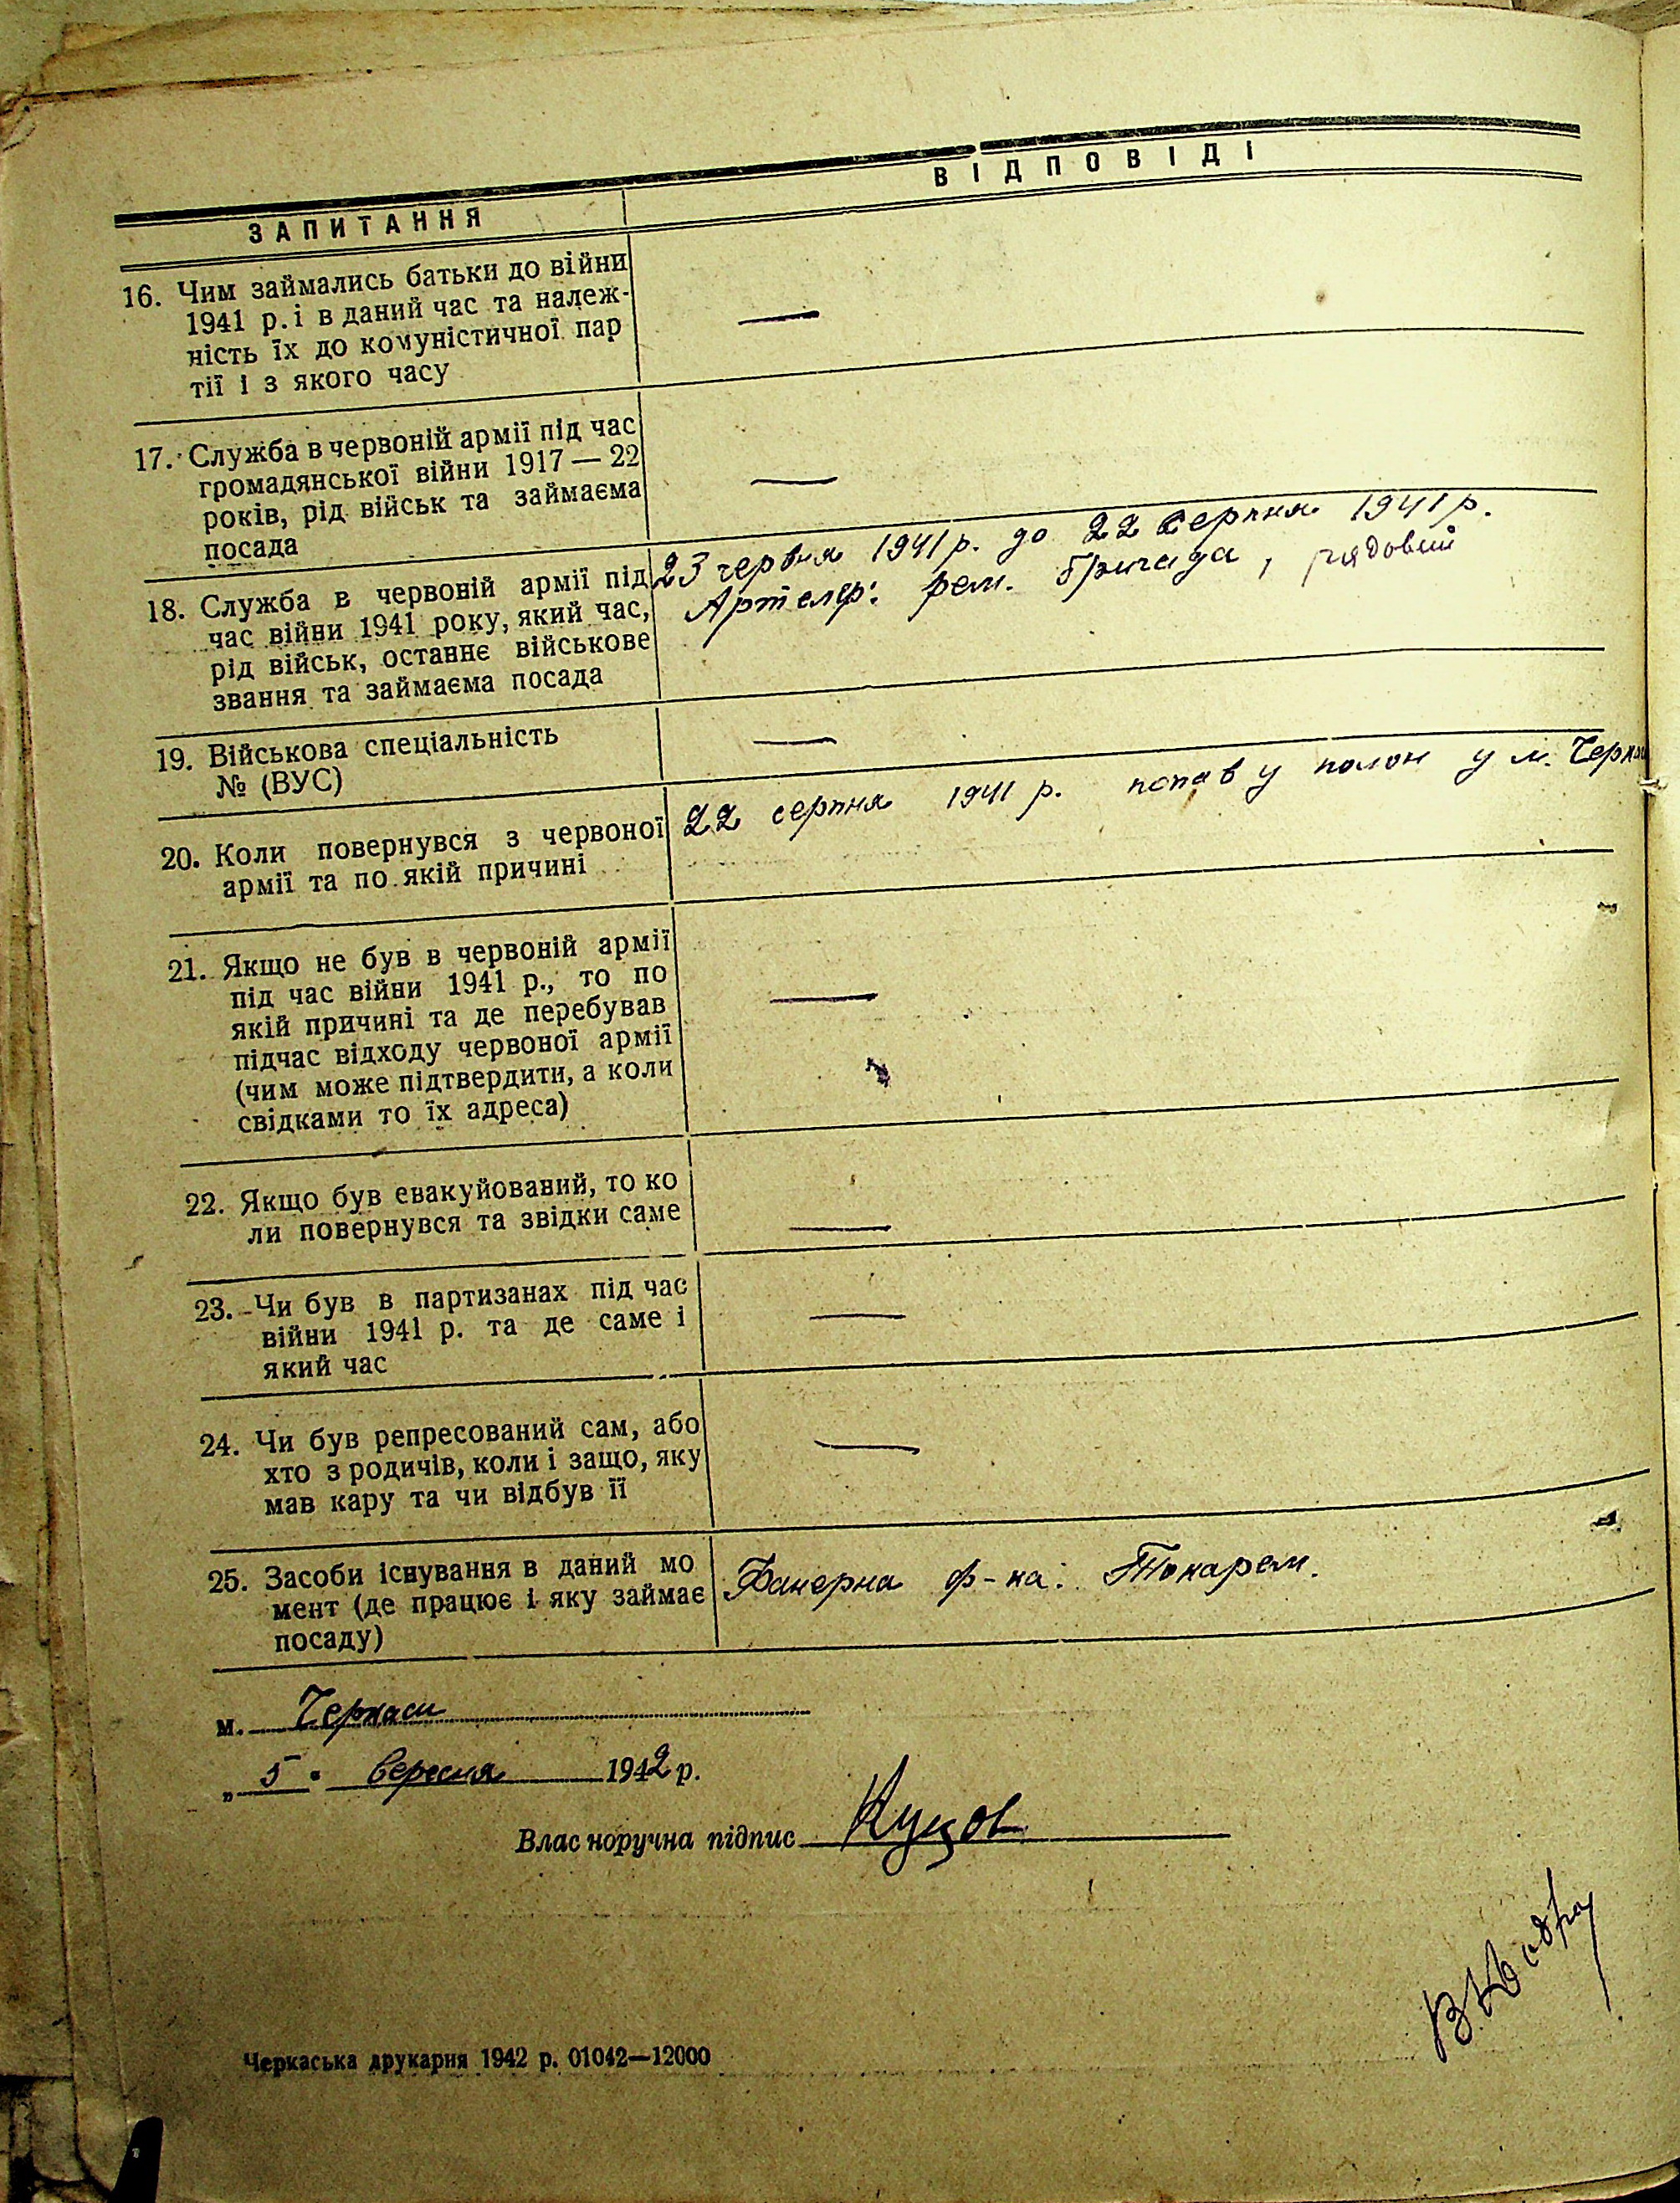 ЗАПИТАННЯ
ВІДПОВІДІ
16. Чим займались батьки до війни
1941 р. і в даний час та належ-
ність їх до комуністичної пар
тії і з якого часу
—
17. Служба в червоній армії під час
громадянської війни 1917 — 22
років, рід військ та займаєма
посада
—
18. Служба в червоній армії під
час війни 1941 року, який час,
рід військ, останнє військове
звання та займаєма посада
23 червня 1941 р. до 22 серпня 1941 р.
Артелер: рем. бригада, рядовий
19. Військова спеціальність
№ (ВУС)
—
20. Коли повернувся з червоної
армії та по якій причині
22 серпня 1941 р. попав у полон у м. Черкаси
21. Якщо не був в червоній армії
під час війни 1941 р., то по
якій причині та де перебував
підчас відходу червоної армії
(чим може підтвердити, а коли
свідками то їх адреса)
—
22. Якщо був евакуйований, то ко
ли повернувся та звідки саме
—
23. Чи був в партизанах під час
війни 1941 р. та де саме і
який час
—
24. Чи був репресований сам, або
хто з родичів, коли і защо, яку
мав кару та чи відбув її
—
25. Засоби існування в даний мо
мент (де працює і яку займає
посаду)
Фанерна ф-ка: Токарем.
м. Черкаси
„ 5 " вересня 1942 р.
Власноручна підпис Куцов
Черкаська друкарня 1942 р. 01042—12000